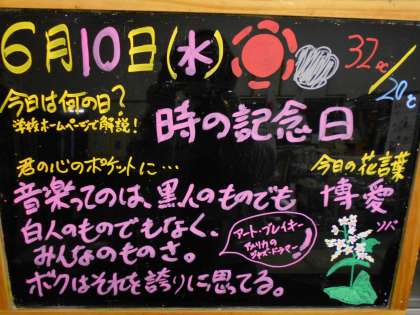 6月10日(水) 32℃/20℃
今日は何の日？
学校ホームページで解説！
時の記念日
君の心のポケットに…
今日の花言葉
博愛
ソバ
音楽ってのは、黒人のものでも
白人のものでもなく、
みんなのものさ。
ボクはそれを誇りに思ってる。
アート・ブレイキー
アメリカの
ジャズ・ドラマー